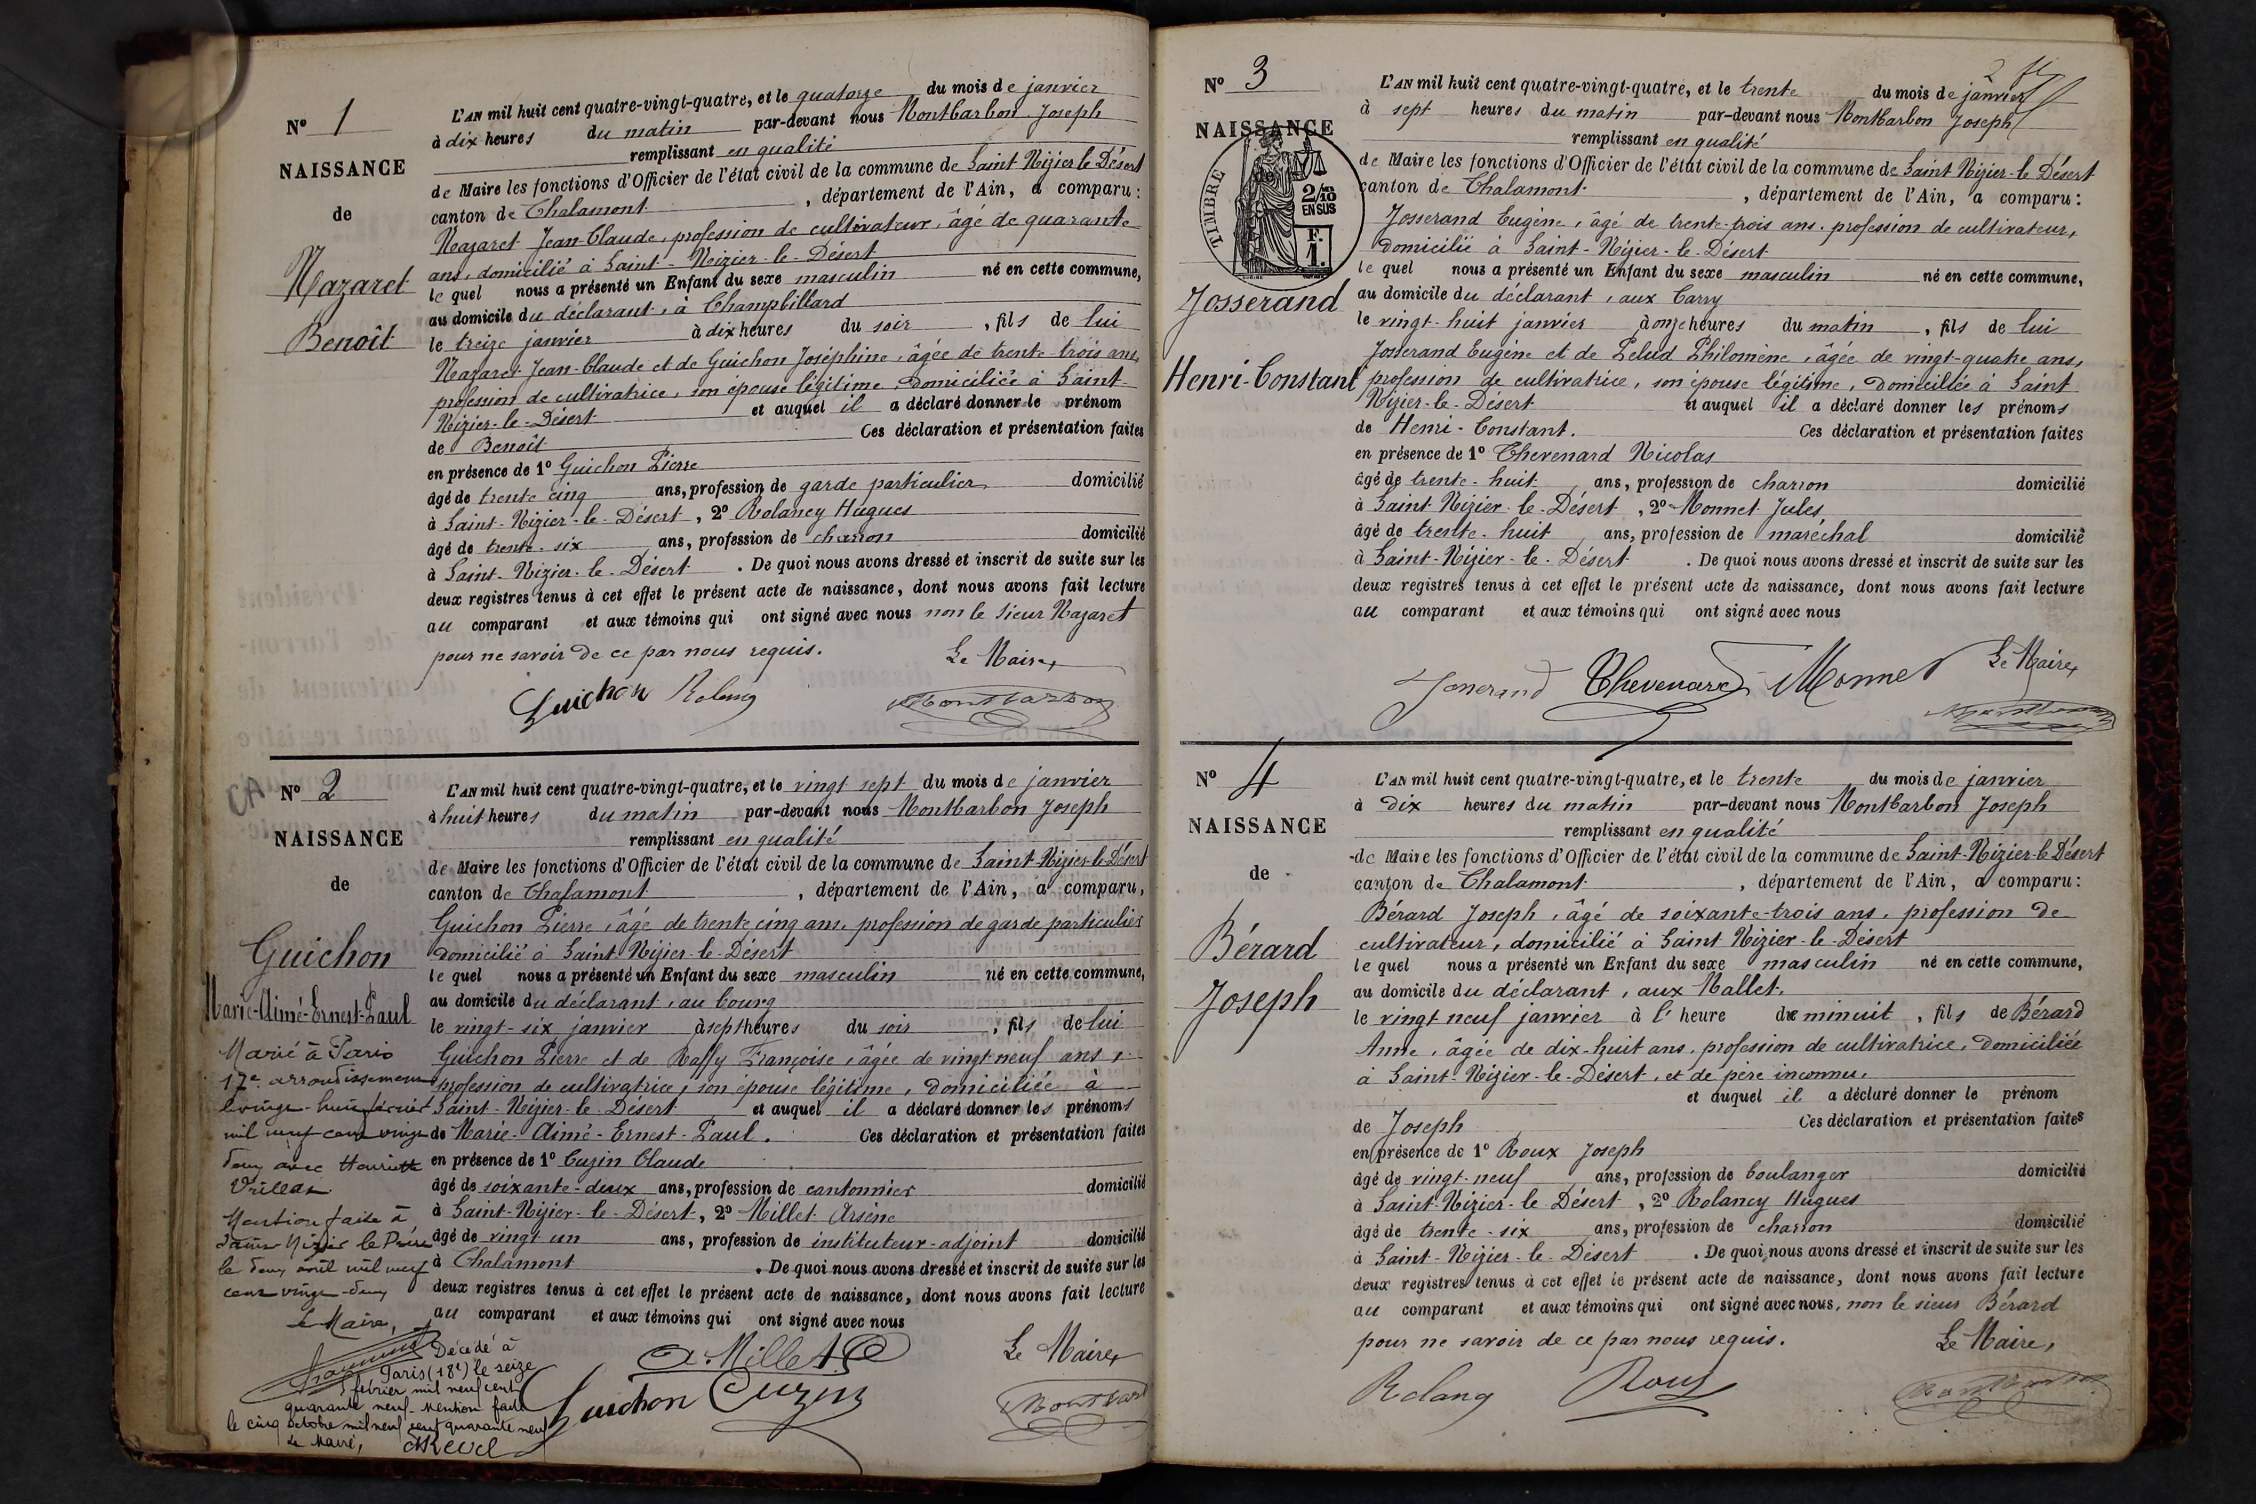 N° 1
NAISSANCE
de
Nazaret
Benoît
L'AN mil huit cent quatre-vingt-quatre, et le quatorze du mois de janvier
à dix heures du matin par-devant nous Montbarbon Joseph
remplissant en qualité
de Maire les fonctions d'Officier de l'état civil de la commune de Saint Nizier le Désert
canton de Chalamont , département de l'Ain, a comparu :
Nazaret Jean-Claude, profession de cultivateur, âgé de quarante
ans, domicilié à Saint-Nizier-le-Désert
le quel nous a présenté un Enfant du sexe masculin né en cette commune,
au domicile du déclarant, à Champbillard
le treize janvier à dix heures du soir , fils de lui
Nazaret Jean-Claude et de Guichon Joséphine, âgée de trente trois ans,
profession de cultivatrice, son épouse légitime domiciliée à Saint-
Nizier-le-Désert et auquel il a déclaré donner le prénom
de Benoit Ces déclaration et présentation faites
en présence de 1° Guichon Pierre
âgé de trente cinq ans, profession de garde particulier domicilié
à Saint-Nizier-le-Désert , 2° Rolancy Hugues
âgé de trente-six ans, profession de charron domicilié
à Saint-Nizier-le-Désert . De quoi nous avons dressé et inscrit de suite sur les
deux registres tenus à cet effet le présent acte de naissance, dont nous avons fait lecture
au comparant et aux témoins qui ont signé avec nous non le sieur Nazaret
pour ne savoir de ce par nous requis. Le Maire,
Guichon Rolancy Montbarbon
N° 2
NAISSANCE
de
Guichon
Marie-Aimé-Ernest-Paul
Marié à Paris
17e arrondissement
le vingt-huit février
mil neuf cent vingt
deux avec Henriette
Mention faite à
Saint Nizier le Désert
le deux avril mil neuf
cent vingt-deux
Le Maire,
Décédé à
Paris (18e) le seize
février mil neuf cent
quarante neuf. Mention faite
le cinq octobre mil neuf cent quarante neuf
Le Maire,
L'AN mil huit cent quatre-vingt-quatre, et le vingt sept du mois de janvier
à huit heures du matin par-devant nous Montbarbon Joseph
remplissant en qualité
de Maire les fonctions d'Officier de l'état civil de la commune de Saint-Nizier-le-Désert
canton de Chalamont , département de l'Ain, a comparu,
Guichon Pierre, âgé de trente cinq ans, profession de garde particulier
domicilié à Saint Nizier-le-Désert
le quel nous a présenté un Enfant du sexe masculin né en cette commune,
au domicile du déclarant, au bourg
le vingt-six janvier à sept heures du soir , fils de lui
Guichon Pierre et de Raffy Françoise, âgée de vingt neuf ans,
profession de cultivatrice, son épouse légitime, domiciliée à
Saint-Nizier-le-Désert et auquel il a déclaré donner les prénoms
de Marie-Aimé-Ernest-Paul. Ces déclaration et présentation faites
en présence de 1° Cuzin Claude
âgé de soixante-deux ans, profession de cantonnier domicilié
à Saint-Nizier-le-Désert, 2° Millet Arsène
âgé de vingt un ans, profession de instituteur-adjoint domicilié
à Chalamont . De quoi nous avons dressé et inscrit de suite sur les
deux registres tenus à cet effet le présent acte de naissance, dont nous avons fait lecture
au comparant et aux témoins qui ont signé avec nous
A. Millet Le Maire,
Guichon Cuzin
N° 3
NAISSANCE
TIMBRE
2/10
EN SUS
F.
1.
Josserand
Henri-Constant
L'AN mil huit cent quatre-vingt-quatre, et le trente du mois de janvier
à sept heures du matin par-devant nous Montbarbon Joseph
remplissant en qualité
de Maire les fonctions d'Officier de l'état civil de la commune de Saint Nizier-le Désert
canton de Chalamont , département de l'Ain, a comparu :
Josserand Eugène, âgé de trente-trois ans, profession de cultivateur,
domicilié à Saint-Nizier-le-Désert
le quel nous a présenté un Enfant du sexe masculin né en cette commune,
au domicile du déclarant, aux Carry
le vingt-huit janvier à onze heures du matin , fils de lui
Josserand Eugène et de Pelud Philomène, âgée de vingt-quatre ans,
profession de cultivatrice, son épouse légitime, domiciliée à Saint
Nizier-le-Désert et auquel il a déclaré donner les prénoms
de Henri-Constant. Ces déclaration et présentation faites
en présence de 1° Thevenard Nicolas
âgé de trente-huit ans, profession de charron domicilié
à Saint-Nizier-le-Désert , 2° Monnet Jules
âgé de trente-huit ans, profession de maréchal domicilié
à Saint-Nizier-le-Désert . De quoi nous avons dressé et inscrit de suite sur les
deux registres tenus à cet effet le présent acte de naissance, dont nous avons fait lecture
au comparant et aux témoins qui ont signé avec nous
Josserand Thevenard Monnet Le Maire,
N° 4
NAISSANCE
de
Bérard
Joseph
L'AN mil huit cent quatre-vingt-quatre, et le trente du mois de janvier
à dix heures du matin par-devant nous Montbarbon Joseph
remplissant en qualité
de Maire les fonctions d'Officier de l'état civil de la commune de Saint-Nizier-le Désert
canton de Chalamont , département de l'Ain, a comparu :
Bérard Joseph, âgé de soixante-trois ans, profession de
cultivateur, domicilié à Saint Nizier-le-Désert
le quel nous a présenté un Enfant du sexe masculin né en cette commune,
au domicile du déclarant, aux Mallet.
le vingt neuf janvier à l'heure de minuit , fils de Bérard
Anne, âgée de dix-huit ans, profession de cultivatrice, domiciliée
à Saint-Nizier-le-Désert, et de père inconnu.
et auquel il a déclaré donner le prénom
de Joseph Ces déclaration et présentation faites
en présence de 1° Roux Joseph
âgé de vingt-neuf ans, profession de boulanger domicilié
à Saint-Nizier-le Désert , 2° Rolancy Hugues
âgé de trente-six ans, profession de charron domicilié
à Saint-Nizier-le-Désert . De quoi nous avons dressé et inscrit de suite sur les
deux registres tenus à cet effet le présent acte de naissance, dont nous avons fait lecture
au comparant et aux témoins qui ont signé avec nous, non le sieur Bérard
pour ne savoir de ce par nous requis. Le Maire,
Rolancy Roux